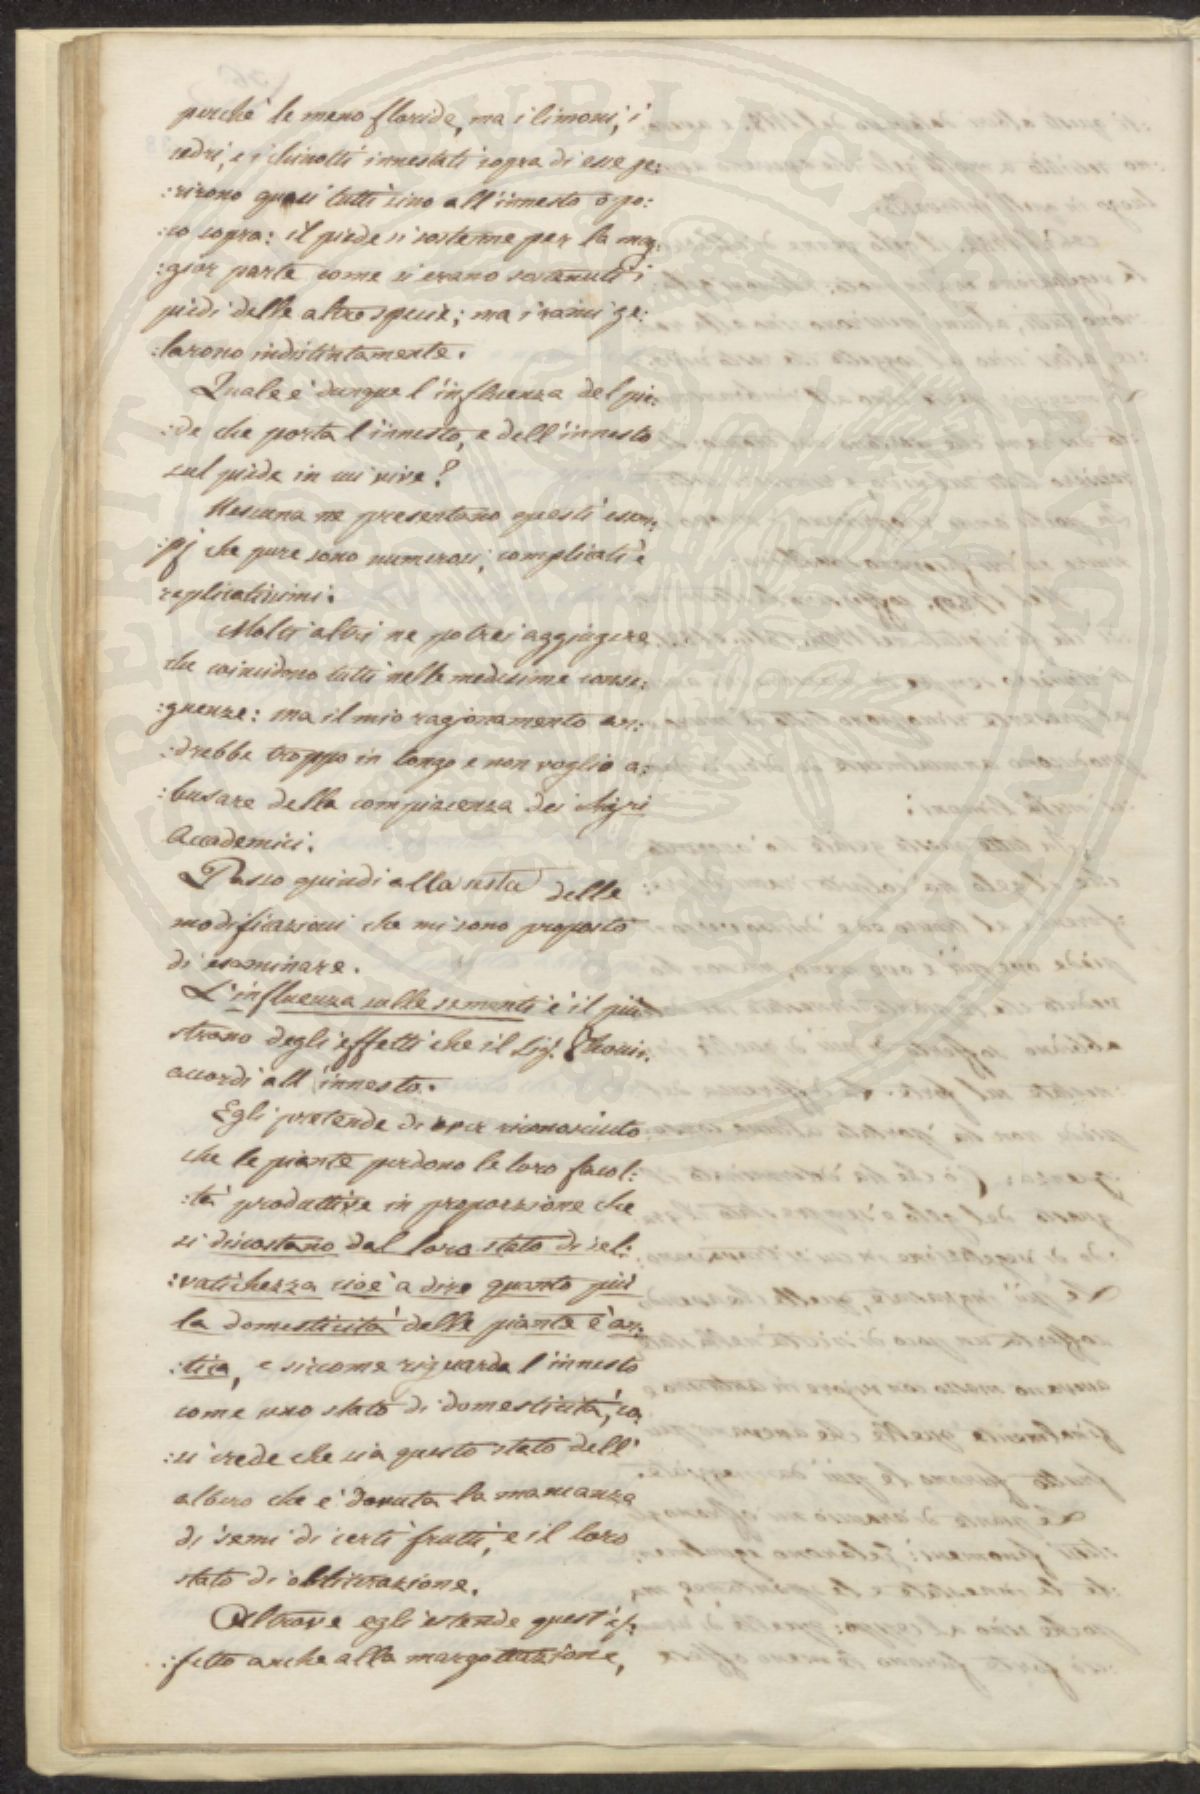 perchè le meno floride, ma i limoni, i
cedri, e i chinotti innestati sopra di esse pe:
:rirono quasi tutti sino all'innesto o po:
:co sopra: il piede si sostenne per la mag:
:gior parte come si erano sostenuti i
piedi delle altre specie; ma i rami ge:
:larono indistintamente.
Quale è dunque l'influenza del pie:
:de che porta l'innesto, e dell'innesto
sul piede in cui vive?
Nessuna ne presentano questi esem:
:pj che pure sono numerosi, complicati e
replicatissimi.
Molti altri ne potrei aggiugere
che coincidono tutti nelle medesime conse:
:guenze: ma il mio ragionamento an:
:drebbe troppo in longo e non voglio a:
:busare della compiacenza dei
Accademici.
Passo quindi alla sesta delle
modificazioni che mi sono proposto
di esaminare.
L'influenza sulle sementi è il più
strano degli effetti che il Sig.
accordi all'innesto.
Egli pretende di aver riconosciuto
che le piante perdono le loro facol:
:tà produttive in proporzione che
si discostano dal loro stato di sel:
:vatichezza cioè a dire quanto più
la domesticità delle piante è an:
:tica, e siccome riguarda l'innesto
come uno stato di domesticità, co:
:si crede che sia questo stato dell'
albero che è dovuta la mancanza
di semi di certi frutti, e il loro
stato di obliterazione.
Altrove egli estende quest'ef:
:fetto anche alla margottazione,